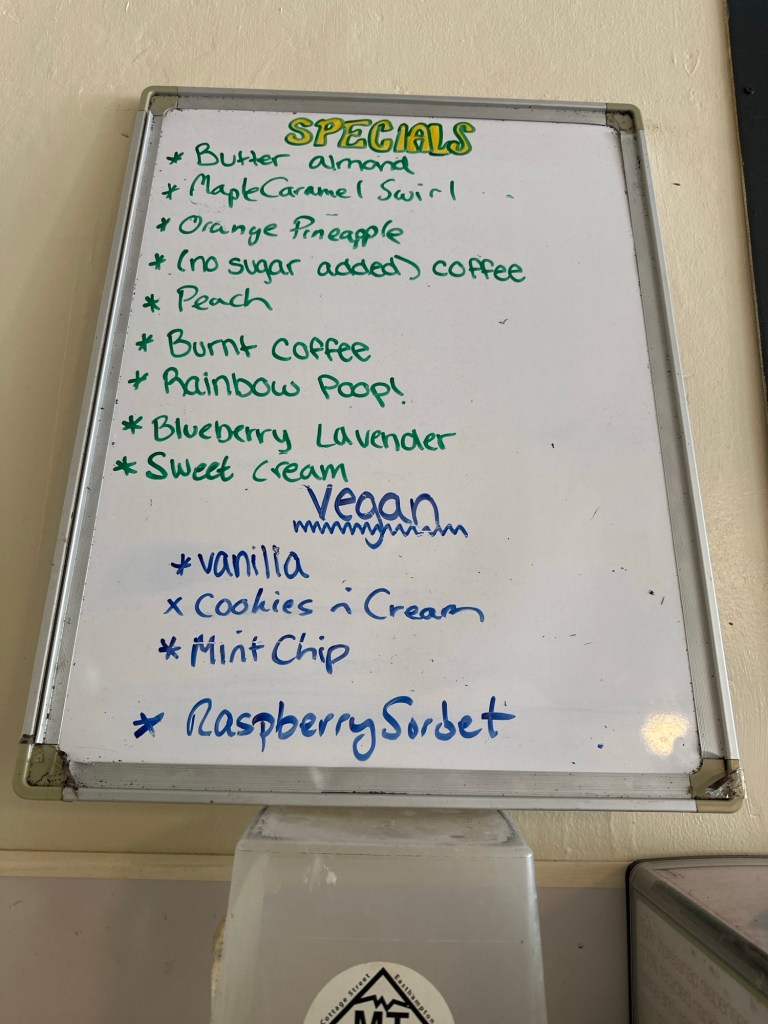 SPECIALS
* Butter almond
* Maple Caramel Swirl
* Orange Pineapple
* (no sugar added) coffee
* Peach
* Burnt Coffee
* Rainbow Poop!
* Blueberry Lavender
* Sweet Cream
Vegan
* vanilla
x Cookies n Cream
* Mint Chip
* Raspberry Sorbet
Cottage Street Easthampton
MT